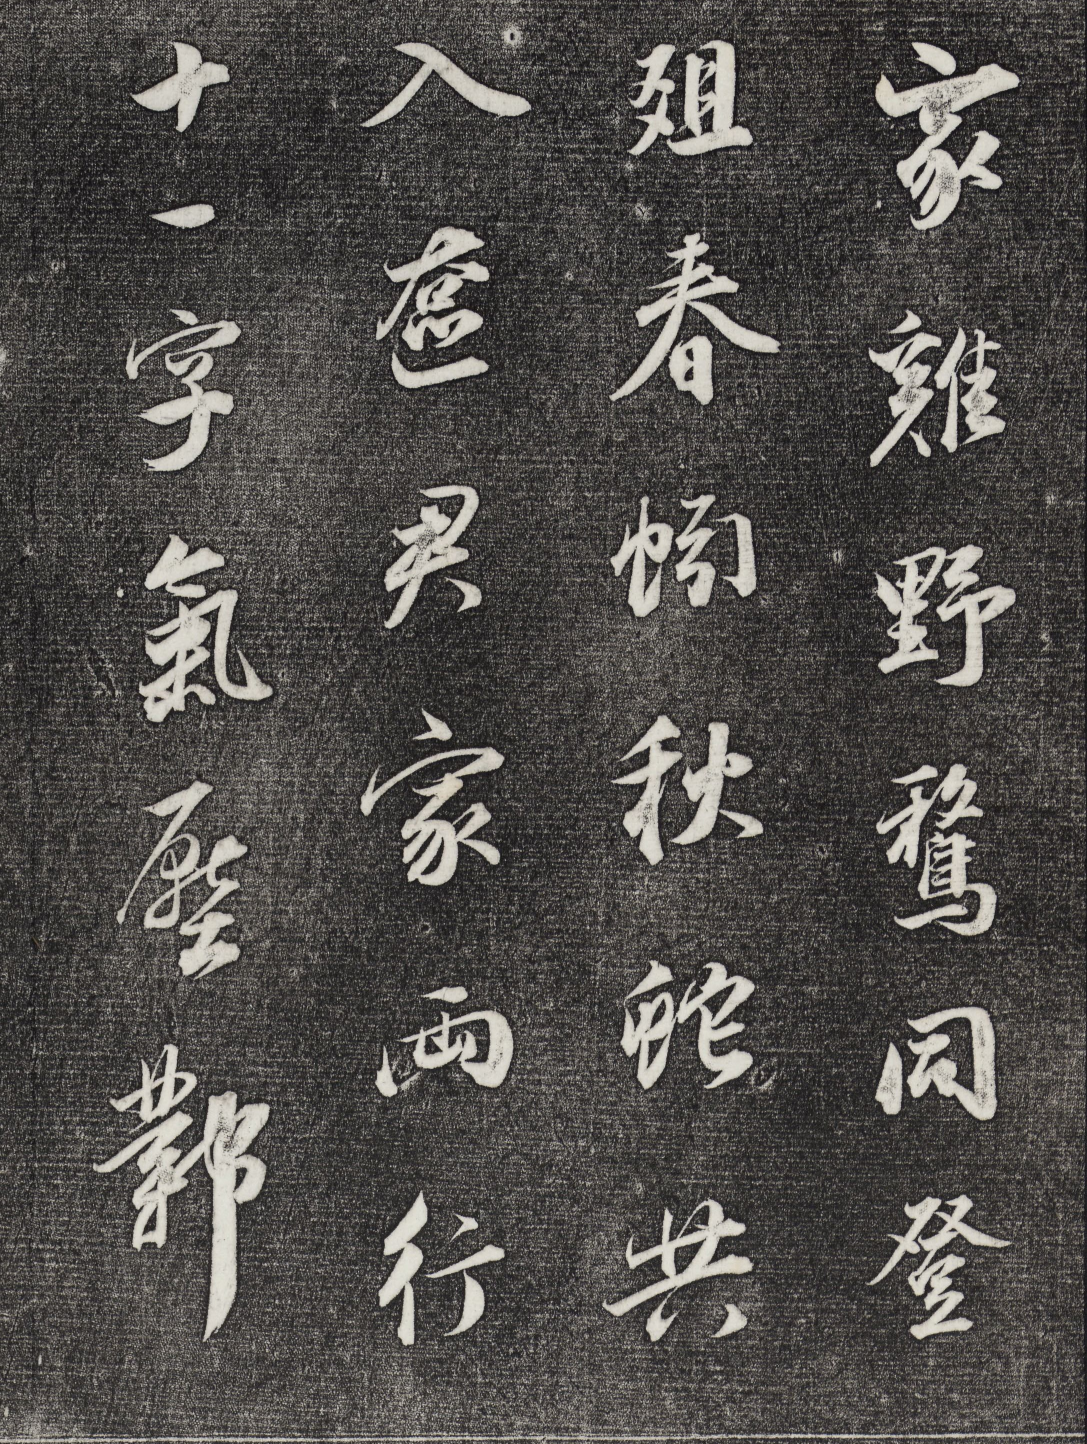 家雞野鶩同登
俎春蚓秋蛇共
入奩君家兩行
十一字氣壓鄴